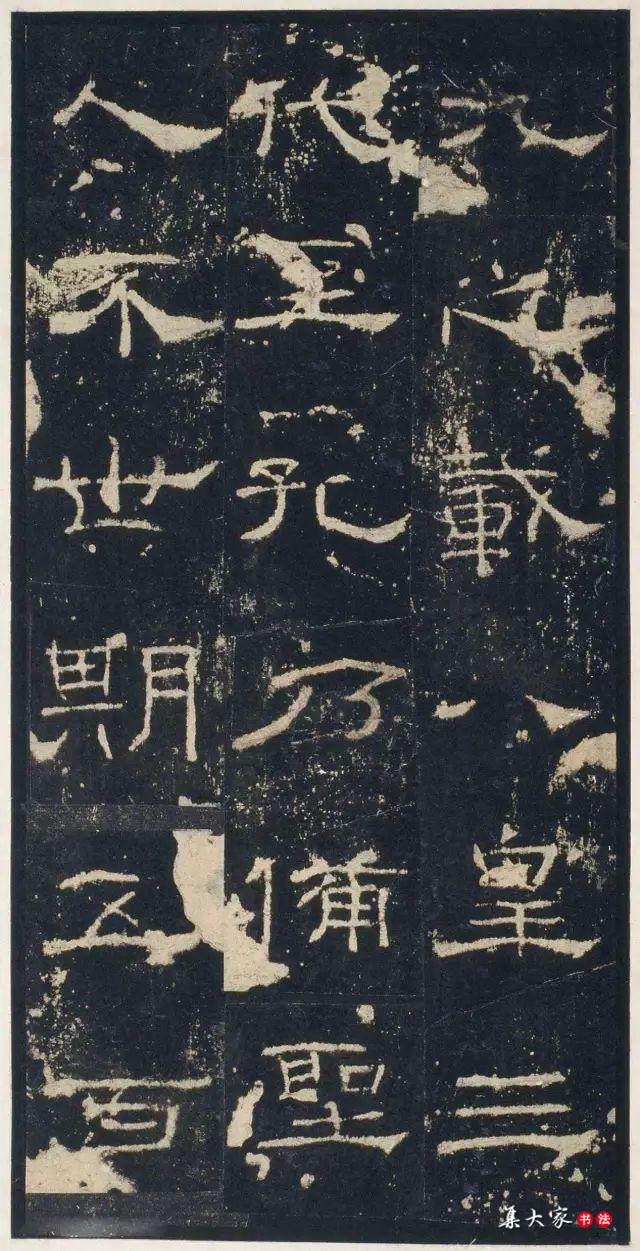 九之載八皇三
代至孔乃備聖
人不世期五百
集大家书法